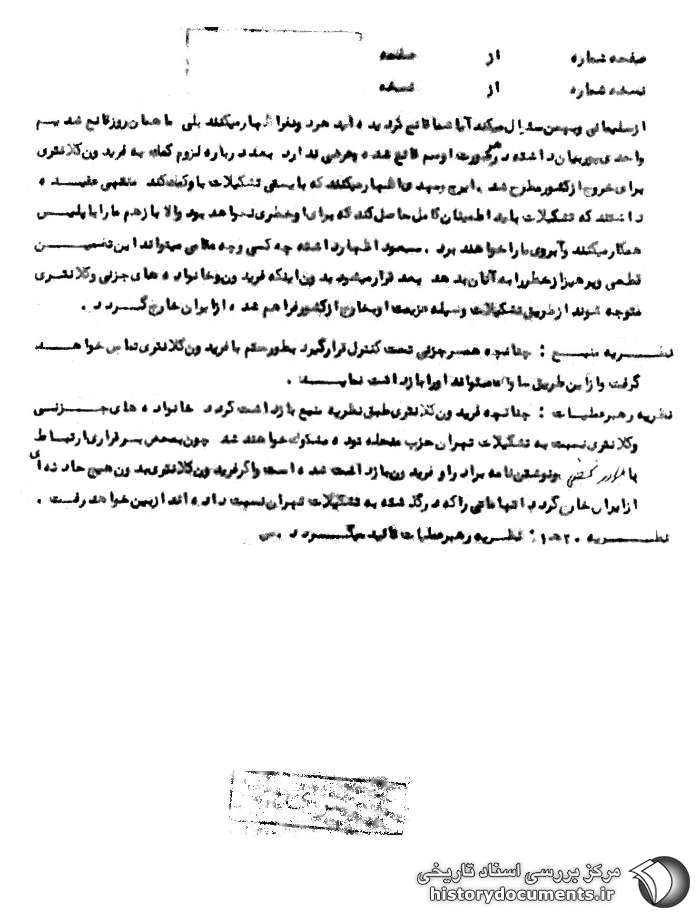 صفحه شماره از صفحه
نسخه شماره از نسخه
از سلیمانی و بهمن سئوال میکند آیا شما قانع گردیده اید هر دو نفر اظهار میکنند بلی ما همان روز قانع شدیم
واحدی جریان داشته در هر صورت او هم قانع شده و حرفی ندارد بعد درباره لزوم کمک به فریدون کلانتری
برای خروج از کشور مطرح شد. ایرج و مهدی اظهار میکنند که بایستی تشکیلات باو کمک کند منتهی عقیده
داشتند که تشکیلات باید اطمینان کامل حاصل کند که برای او خطری نخواهد بود والا باز هم ما را با پلیس
همکار میکنند و آبروی ما را خواهند برد. مسعود اظهار داشته چه کسی و چه مقامی میتواند این تضمین
قطعی و پرهیز از خطر را به آنان بدهد بعد قرار میشود بدون اینکه فریدون و خانواده های جزنی و کلانتری
متوجه شوند از طریق تشکیلات وسیله عزیمت او بخارج از کشور فراهم شده از ایران خارج گردد.
نظریه منبع: چنانچه همسر جزنی تحت کنترل قرار گیرد بطور حتم با فریدون کلانتری تماس خواهد
گرفت و از این طریق ساواک میتواند او را بازداشت نماید.
نظریه رهبر عملیات: چنانچه فریدون کلانتری طبق نظریه منبع بازداشت گردد خانواده های جزنی
و کلانتری نسبت به تشکیلات تهران حزب منحله توده مشکوک خواهند شد چون بمحض برقراری ارتباط
با و نوشتن نامه برادر او فریدون بازداشت شده است و اگر فریدون کلانتری بدون هیچ حادثه ای
از ایران خارج گردد اتهاماتی را که در گذشته به تشکیلات تهران نسبت داده اند از بین خواهد رفت.
نظریه ۲۰ هـ ۱: نظریه رهبر عملیات تائید میگردد
سری
مرکز بررسی اسناد تاریخی
historydocuments.ir